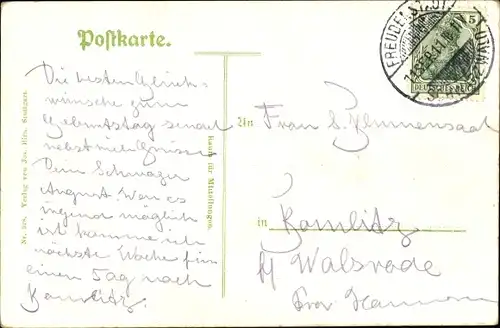 Postkarte.
Die besten Glück-
wünsche zum
Geburtstag sendet
nebst vielen Grüssen
Dein Schwager
August. Wenn es
irgend möglich
ist komme ich
nächste Woche für
einen Tag nach
Bomlitz.
Verlag von Jos. Stuttgart.
Raum für Mitteilungen.
FREUDENSTADT
5
DEUTSCHES REICH
An Frau S. Blumensaat
in Bomlitz
b/ Walsrode
Prov Hannover